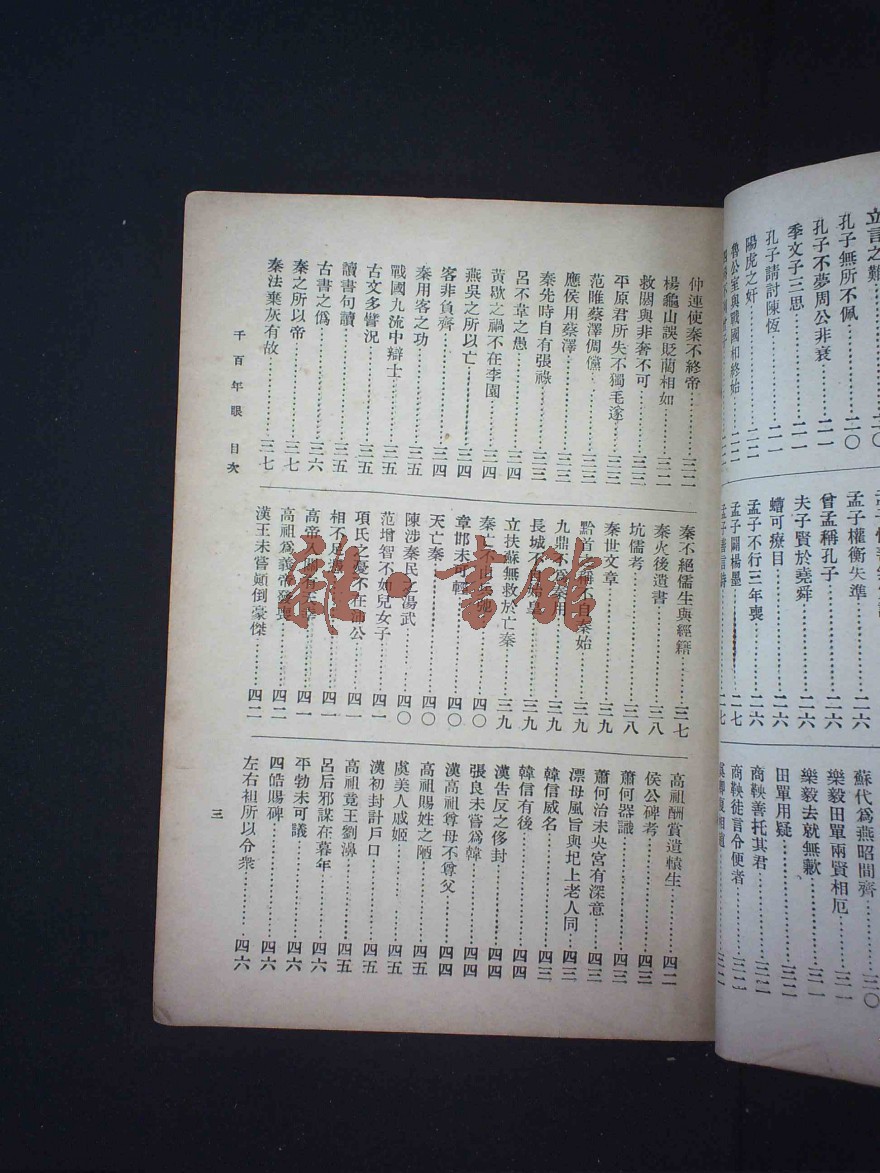 立言之難……二〇
孔子無所不佩……二〇
孔子不夢周公非衰……二一
季文子三思……二一
孔子請討陳恆……二一
陽虎之奸……二二
魯公室與戰國相終始……二二
孟子權衡失準……二六
曾孟稱孔子……二六
夫子賢於堯舜……二六
螬可療目……二六
孟子不行三年喪……二六
孟子闢楊墨……二七
孟子善言詩……二七
蘇代爲燕昭間齊……三〇
樂毅田單兩賢相厄……三一
樂毅去就無歉……三一
田單用疑……三二
商鞅善托其君……三二
商鞅徒言令便者……三二
仲連使秦不終帝……三二
楊龜山誤貶藺相如……三二
救閼與非奢不可……三三
平原君所失不獨毛遂……三三
范雎蔡澤倜儻……三三
應侯用蔡澤……三三
秦先時自有張祿……三三
呂不韋之愚……三四
黄歇之禍不在李園……三四
燕吳之所以亡……三四
客非負齊……三四
秦用客之功……三五
戰國九流中辯士……三五
古文多譬況……三五
讀書句讀……三五
古書之僞……三六
秦之所以帝……三七
秦法棄灰有故……三七
秦不絕儒生與經籍……三七
秦火後遺書……三八
坑儒考……三八
秦世文章……三九
黔首之稱不自秦始……三九
九鼎不爲秦用……三九
長城不自始皇……三九
立扶蘇無救於亡秦……三九
秦亡不由……四〇
章邯未可輕……四〇
天亡秦……四〇
陳涉秦民之湯武……四〇
范增智不如兒女子……四一
項氏之憂不在沛公……四一
相不足……四一
高帝入關有……四一
高祖爲義帝發喪……四二
漢王未嘗顚倒豪傑……四二
高祖酬賞遺轅生……四二
侯公碑考……四三
蕭何器識……四三
蕭何治未央宮有深意……四三
漂母風旨與圯上老人同……四三
韓信威名……四三
韓信有後……四四
漢告反之侈封……四四
張良未嘗爲韓……四四
漢高祖尊母不尊父……四四
高祖賜姓之陋……四五
虞美人戚姬……四五
漢初封計戶口……四五
高祖竟王劉濞……四五
呂后邪謀在暮年……四六
平勃未可議……四六
四皓賜碑……四六
左右袒所以令衆……四六
千百年眼 目次
三
雜·書館